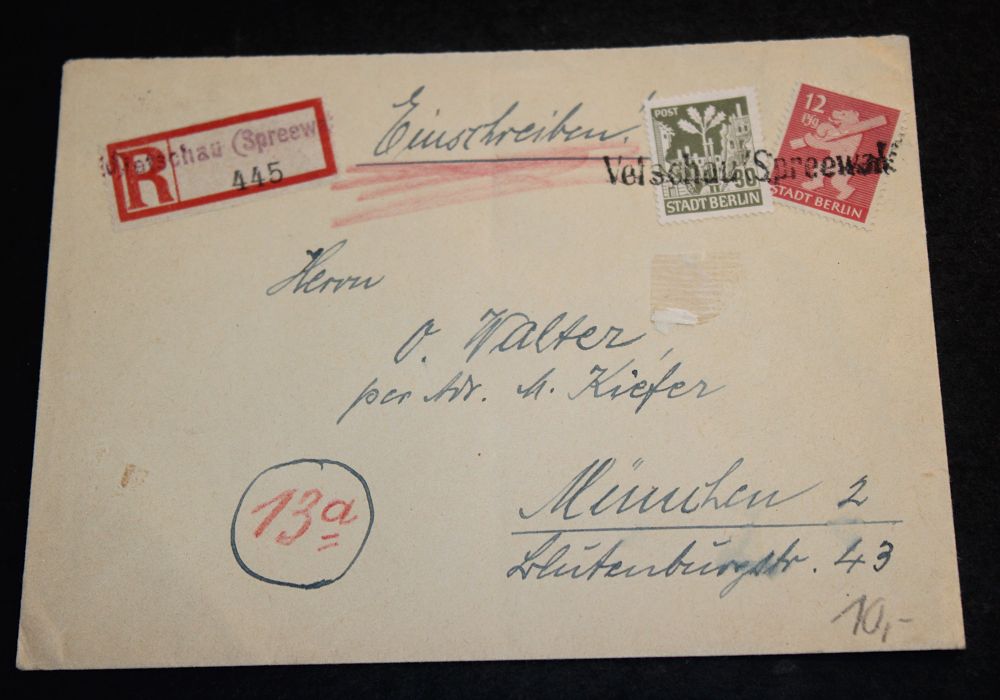 Vetschau (Spreew
R
445
Einschreiben!
POST
30
STADT BERLIN
12
Pfg
STADT BERLIN
Vetschau/Spreewald
Herrn
O. Walter,
per Adr. M. Kiefer
13a
München 2
Blutenburgstr. 43
10,-